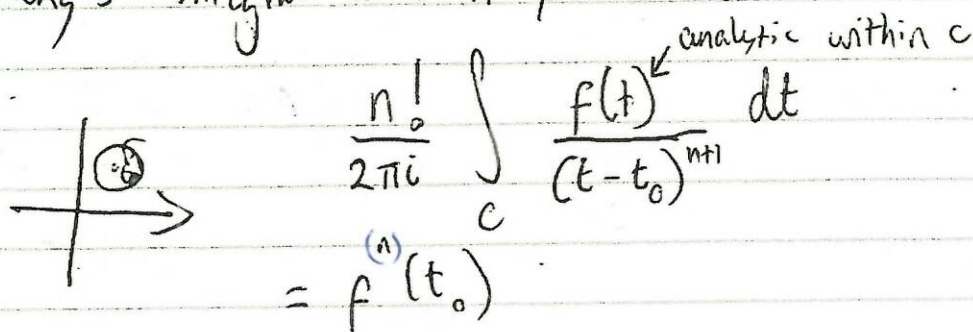 analytic within c
n!/2πi ∫_C f(t)/(t-t₀)^{n+1} dt
= f^{(n)}(t₀)